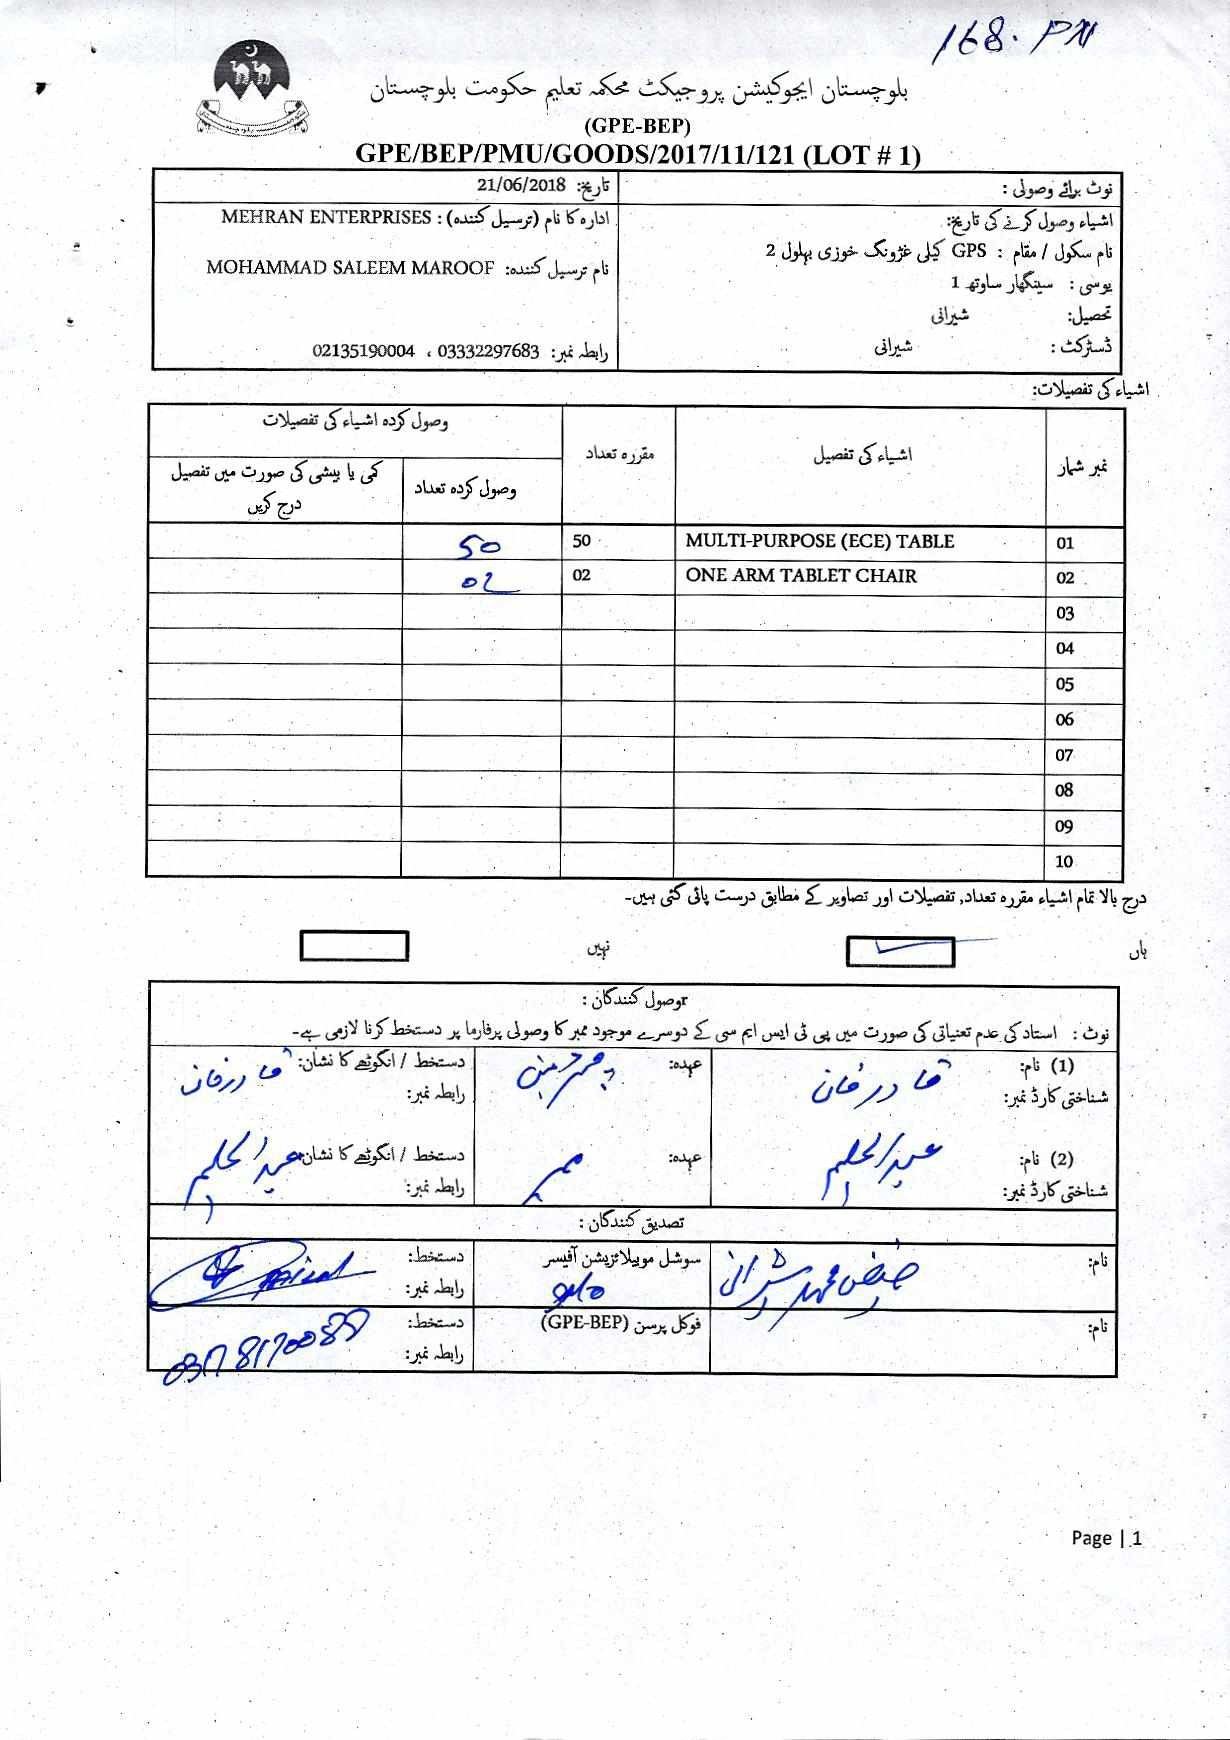 168. PM
بلوچستان ایجوکیشن پروجیکٹ محکمہ تعلیم حکومت بلوچستان
(GPE-BEP)
GPE/BEP/PMU/GOODS/2017/11/121 (LOT # 1)
نوٹ برائے وصولی :
تاریخ: 21/06/2018
اشیاء وصول کرنے کی تاریخ:
ادارہ کا نام (ترسیل کنندہ) : MEHRAN ENTERPRISES
نام سکول / مقام : GPS کیلی غژونگ خوزی بہلول 2
نام ترسیل کنندہ: MOHAMMAD SALEEM MAROOF
یوسی : سینگھار ساوتھ 1
تحصیل: شیرانی
ڈسٹرکٹ : شیرانی
رابطہ نمبر: 03332297683 ، 02135190004
اشیاء کی تفصیلات:
نمبر شمار اشیاء کی تفصیل مقررہ تعداد وصول کردہ اشیاء کی تفصیلات
وصول کردہ تعداد کمی یا بیشی کی صورت میں تفصیل درج کریں
01 MULTI-PURPOSE (ECE) TABLE 50 50
02 ONE ARM TABLET CHAIR 02 02
03
04
05
06
07
08
09
10
درج بالا تمام اشیاء مقررہ تعداد, تفصیلات اور تصاویر کے مطابق درست پائی گئی ہیں۔
ہاں نہیں
rوصول کنندگان :
نوٹ : استاد کی عدم تعنیاتی کی صورت میں پی ٹی ایس ایم سی کے دوسرے موجود ممبر کا وصولی پرفارما پر دستخط کرنا لازمی ہے۔
(1) نام: قادرخان عہدہ: دستخط / انگوٹھے کا نشان: قادرخان
شناختی کارڈ نمبر: رابطہ نمبر:
(2) نام: عبدالحلیم عہدہ: ممبر دستخط / انگوٹھے کا نشان: عبدالحلیم
شناختی کارڈ نمبر: رابطہ نمبر:
تصدیق کنندگان :
نام: سوشل موبیلائزیشن آفیسر دستخط:
رابطہ نمبر:
نام: فوکل پرسن (GPE-BEP) دستخط:
رابطہ نمبر:
Page | 1